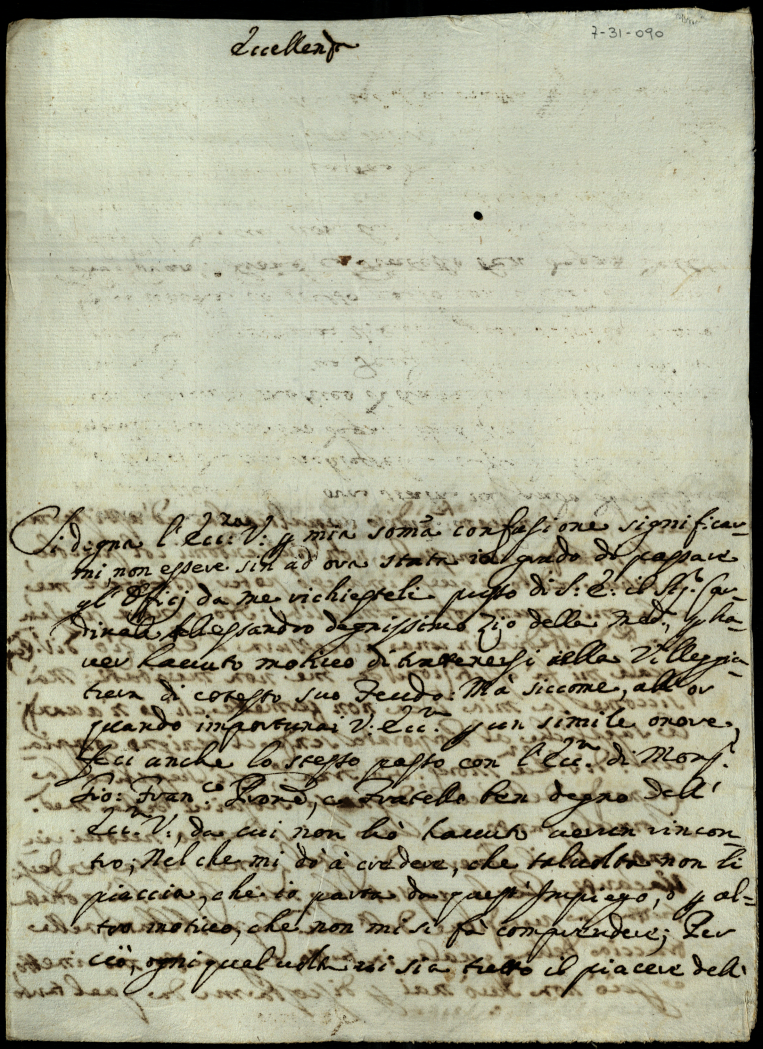 7-31-090
Eccellenza
Si degna l'Ecc.za V: p mia somā confusione significar-
mi, non essere sin ad'ora stata in grado di passare
gl'Officj da me richiesteli presso di S: E: il Sig.r Car-
dinale Alessandro degnissimo Zio della Med.a, p ha-
ver havuto motivo di trattenersi nella Villeggia-
tura di cotesto suo Feudo: Mà siccome, all'or
quando importunai V: Ecc.za p un simile onore,
feci anche lo stesso passo con l'Ecc.za di Mons.r
Gio: Fran.co Fratello ben degno dell'
Ecc.za V:, da cui non hò havuto verun rincon-
tro; Nel che mi dò à credere, che talvolta non li
piaccia, che io parta da quest'Impiego, ò p al-
tro motivo, che non mi si fà comprendere; Per
ciò, ogni qual volta vi sia tutto il piacere dell'